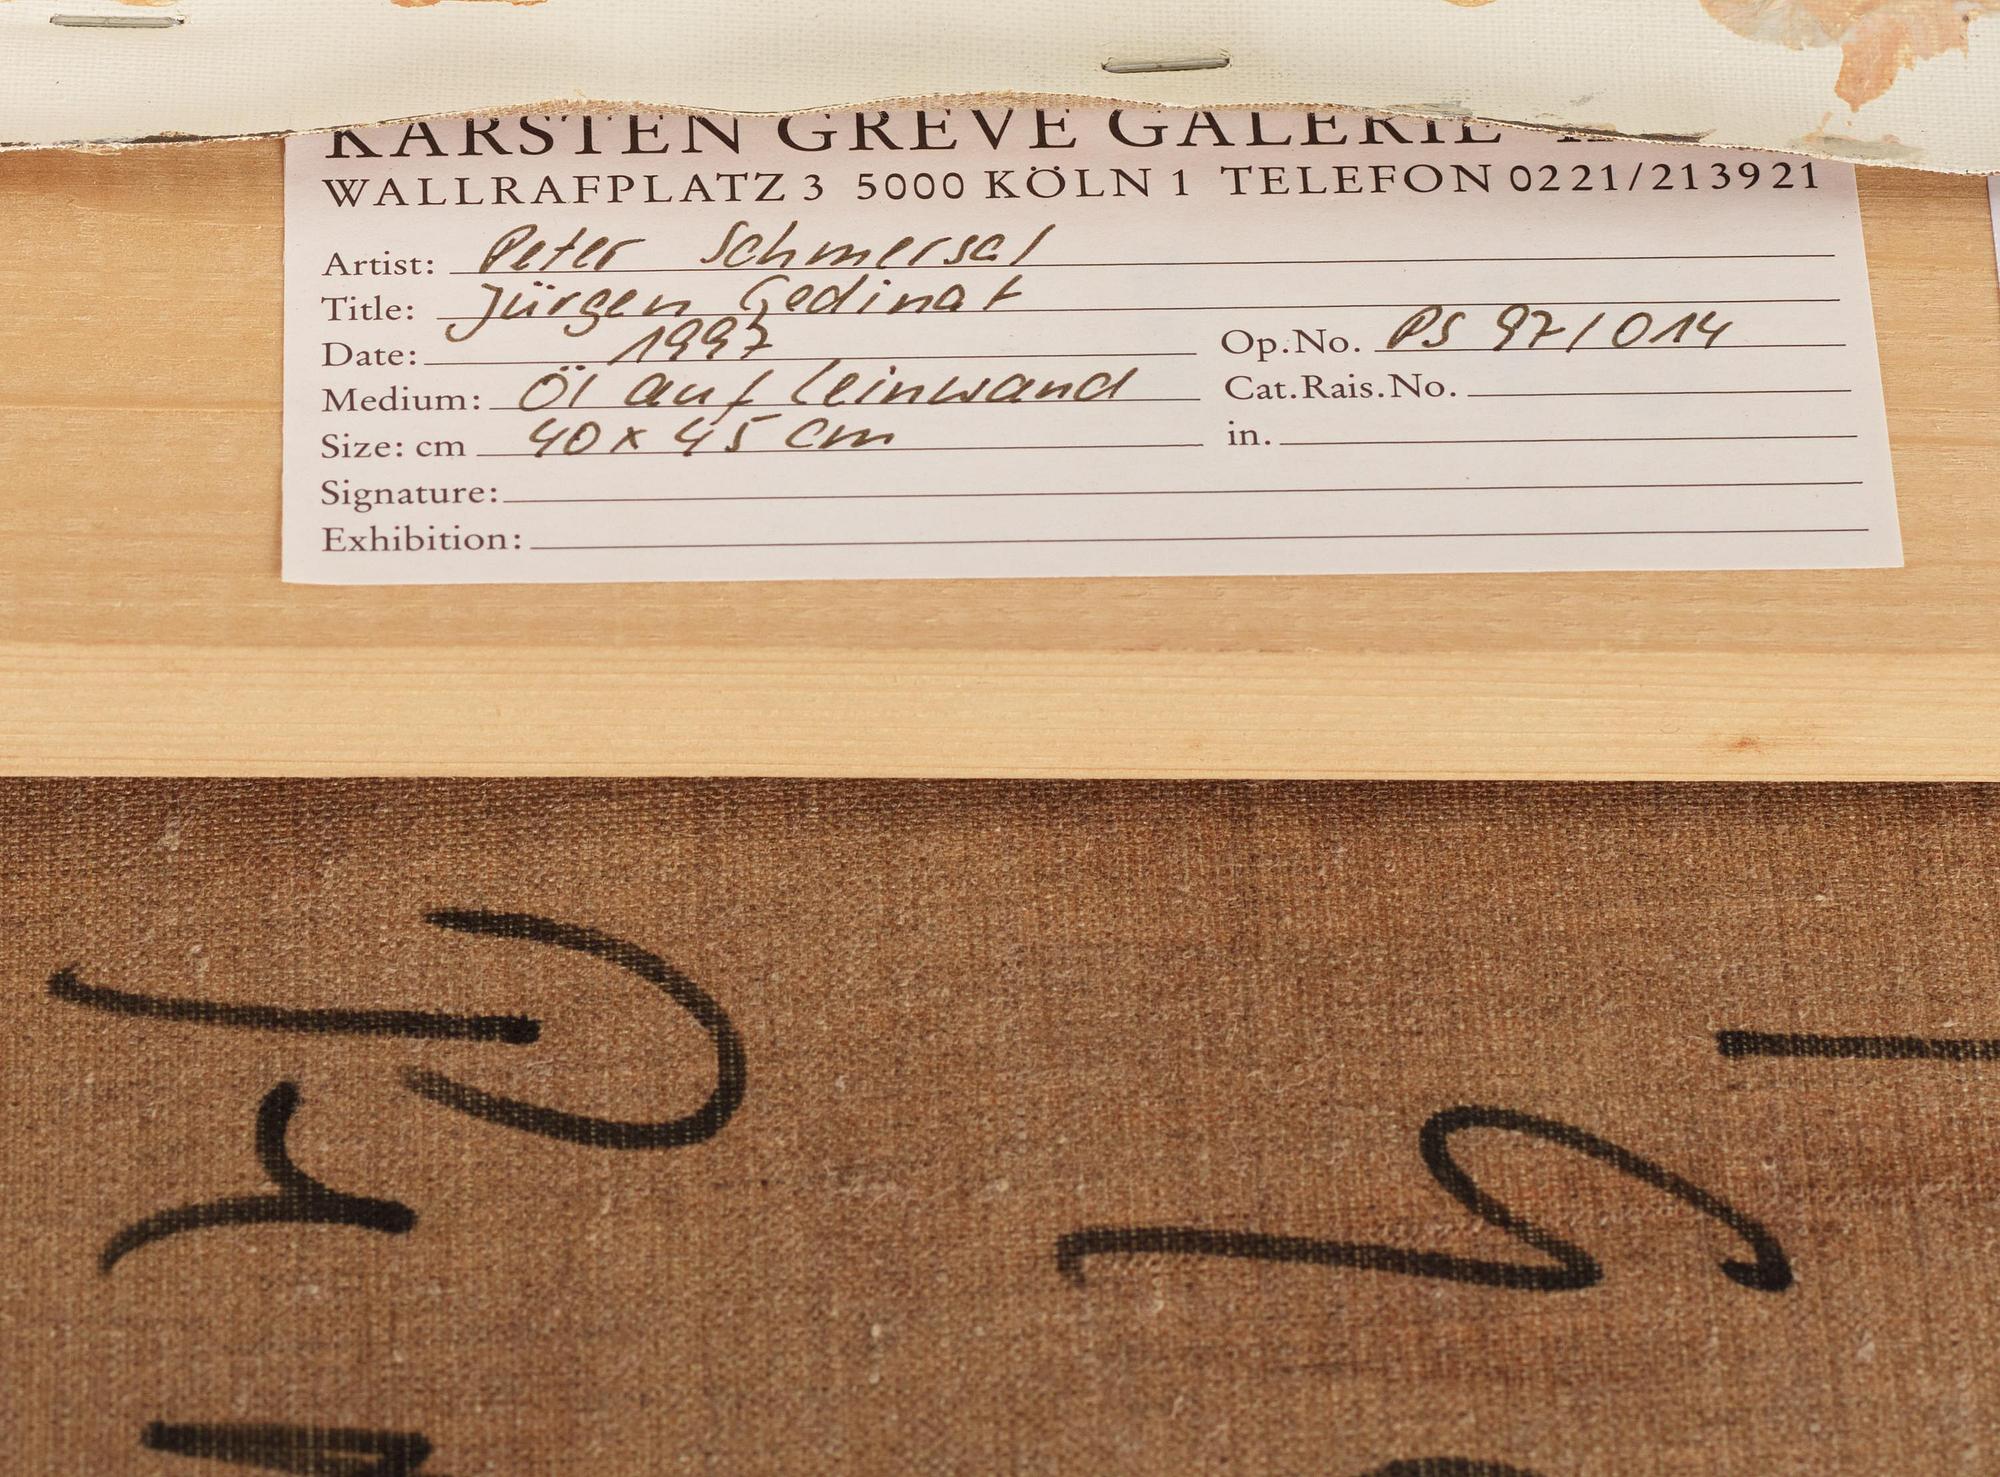 KARSTEN GREVE GALERIE
WALLRAFPLATZ 3 5000 KÖLN 1 TELEFON 0221/213921
Artist: Peter Schmersal
Title: Jürgen Gedinat
Date: 1997 Op.No. PS 97/014
Medium: Öl auf Leinwand Cat.Rais.No.
Size: cm 40 x 45 cm in.
Signature:
Exhibition: